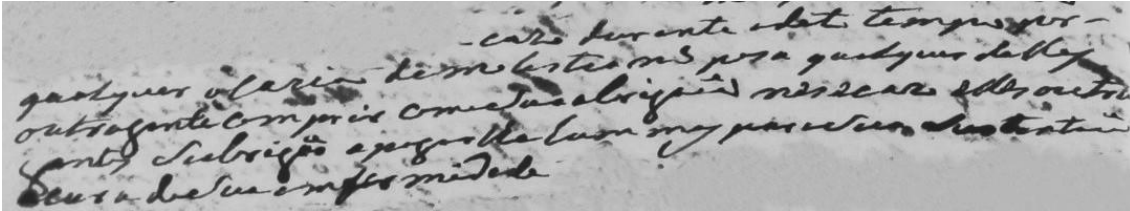 caso durante este tempo por-
qualquer ocazião de molestia não possa qualquer delles
outrogante comprir com sua obrigação nese cazo elles outro
gantes se obrigão a pagar lhe hum mes para seu sustento
e cura de sua emfermidade